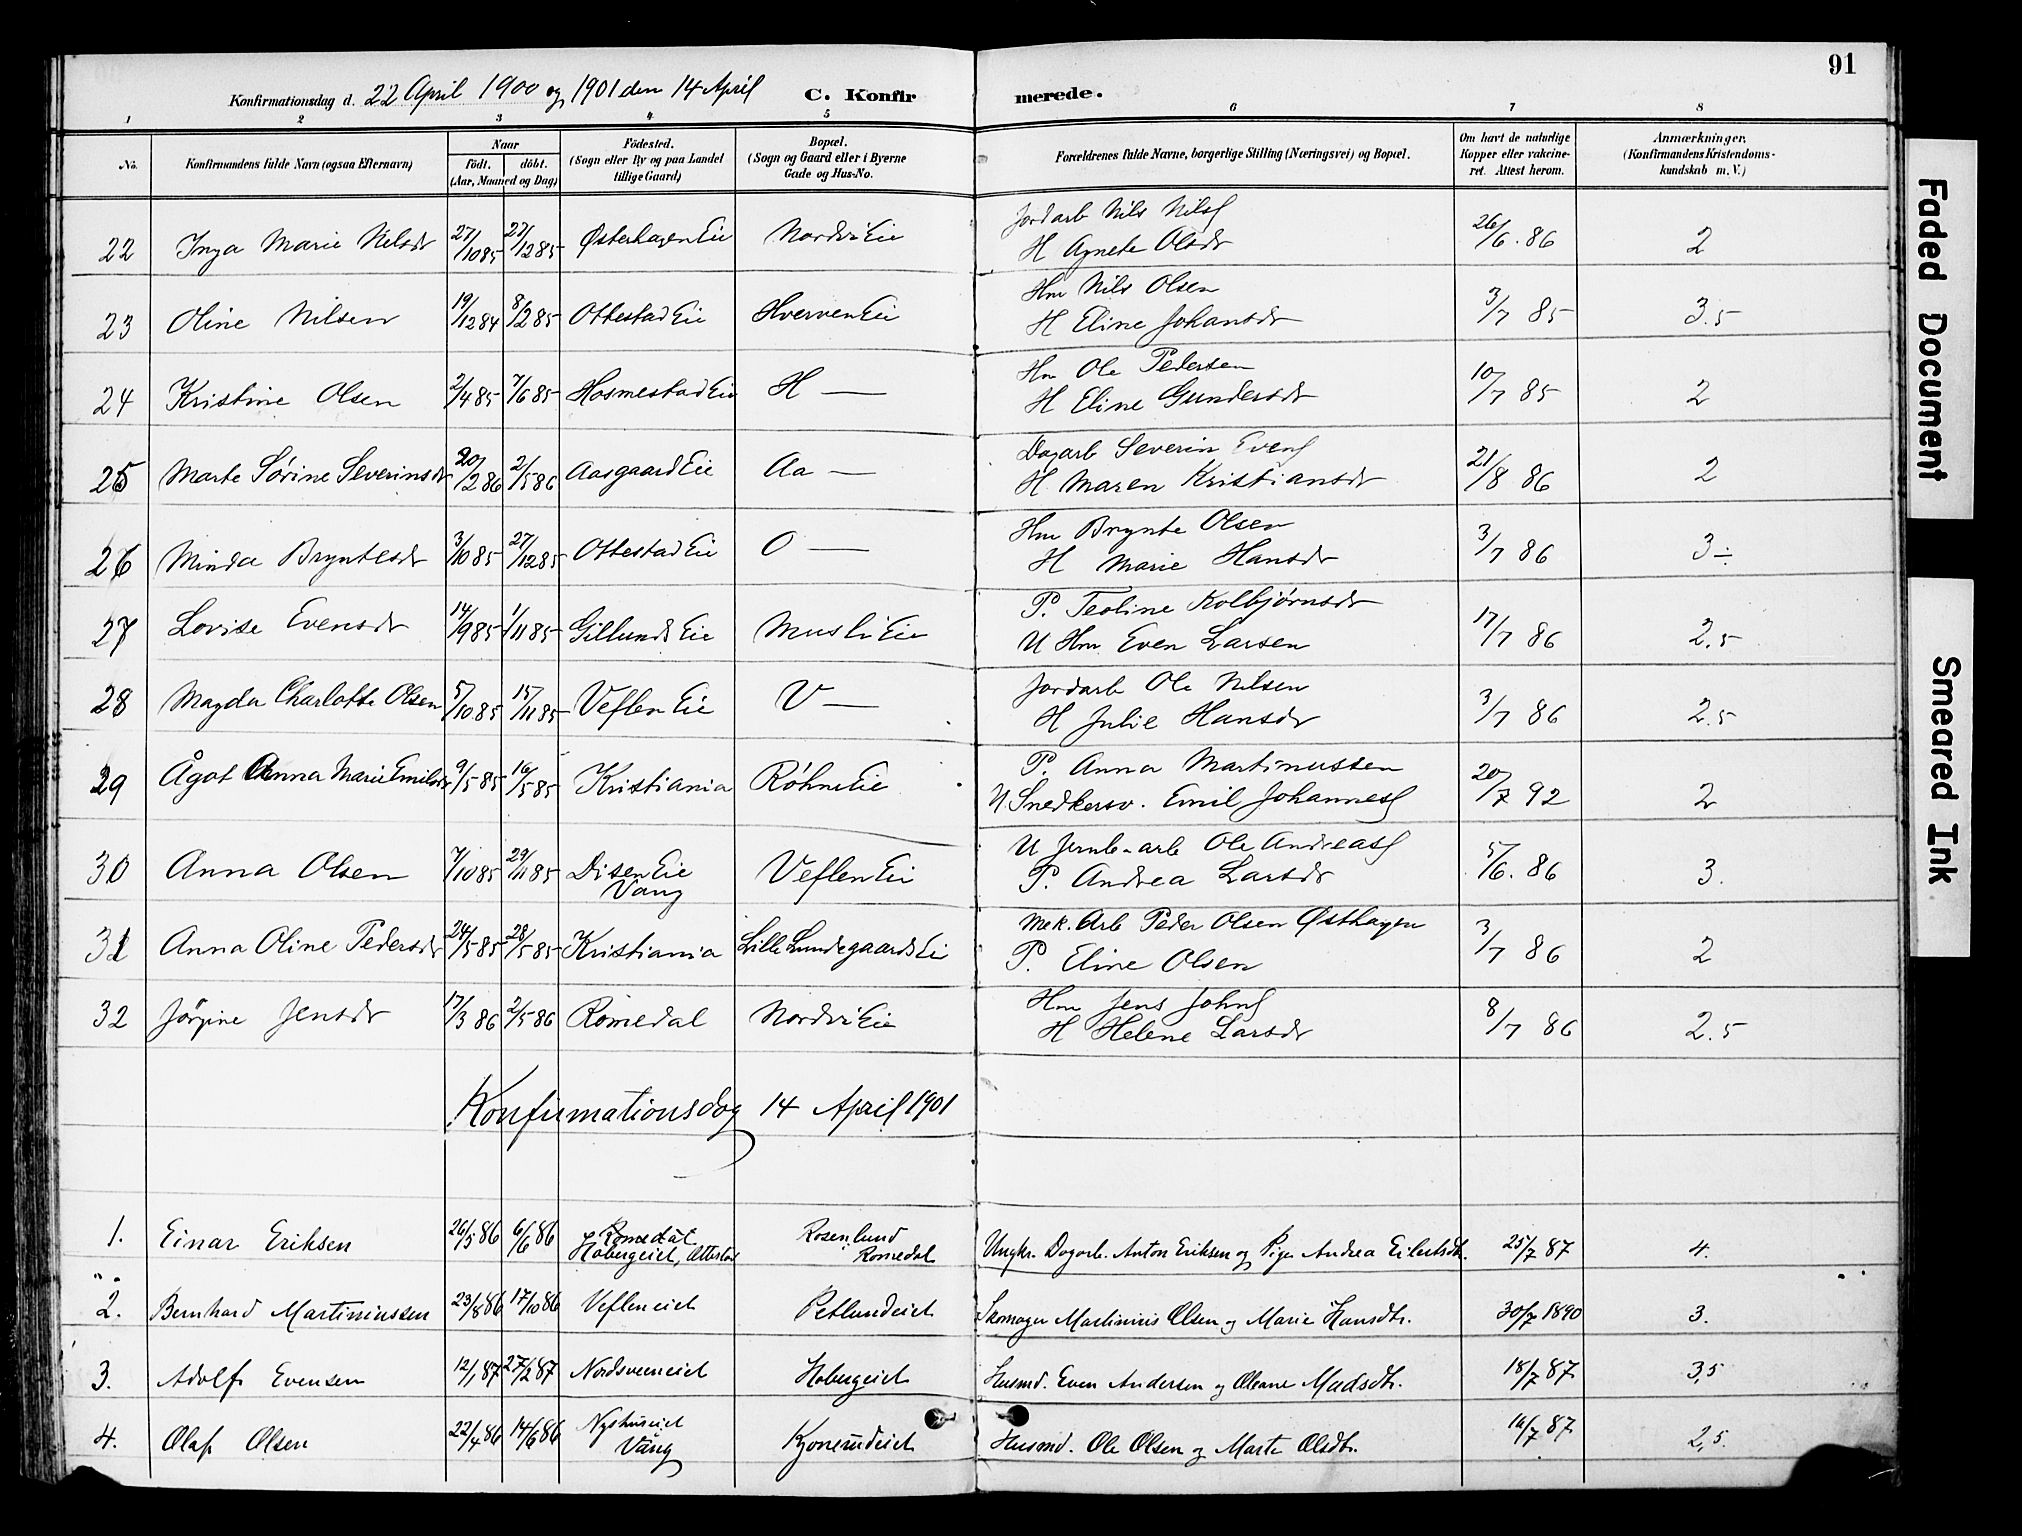 91
Konfirmationsdag d. 22 April 1900 og 1901 den 14 April C. Konfirmerede.
1 2 3 4 5 6 7 8
No. Konfirmandens fulde Navn (ogsaa Efternavn) Naar født. døbt. (Aar, Maaned og Dag) Fødested. (Sogn eller By og paa Landet tillige Gaard) Bopæl. (Sogn og Gaard eller i Byerne Gade og Hus-No. Forældrenes fulde Navne, borgerlige Stilling (Næringsvei) og Bopæl. Om havt de naturlige Kopper eller vakcineret. Attest herom. Anmærkninger. (Konfirmandens Kristendomskundskab m. V.)
22 Inga Marie Nilsdr 27/10 85 27/12 85 Østerhagen Eie Nordvi Eie Jordarb Nils Nils H Agnete Olsdr 26/6. 86 2
23 Oline Nilsen 19/12 84 8/2 85 Ottestad Eie Hverven Eie Hm Nils Olsen H Eline Johansdr 3/7 85 3.5
24 Kristine Olsen 2/4 85 7/6 85 Hosmestad Eie H — Hm Ole Pedersen H Eline Gundersdr 10/7 85 2
25 Marte Sørine Severinsdr 20/2 86 2/5 86 Aasgaard Eie Aa — Dagarb Severin Evens H Maren Kristiansdr 21/8 86 2
26 Minda Bryntesdr 3/10 85 27/12 85 Ottestad Eie O — Hm Brynte Olsen H Marie Hansdr 3/7 86 3÷
27 Lovise Evensdr 14/9 85 1/11 85 Gillunds Eie Musli Eie P. Teoline Kolbjørnsdr U Hm Even Larsen 17/7 86 2.5
28 Magda Charlotte Olsen 5/10 85 15/11 85 Veflen Eie V — Jordarb Ole Nilsen H Julie Hansdr 3/7 86 2.5
29 Ågot Anna Marie Emilsdr 9/5 85 16/5 85 Kristiania Røhne Eie P. Anna Martinussen U. Snedkersv. Emil Johannes 20/7 92 2
30 Anna Olsen 7/10 85 29/11 85 Disen Eie Vang Veflen Ei U Jernb-arb Ole Andreas P. Andrea Larsdr 5/6. 86 3.
31 Anna Oline Pedersdr 24/5 85 28/5 85 Kristiania Lille Lundegaards Ei Mek. Arb Peder Olsen Østhagen P. Eline Olsen 3/7 86 2
32 Jørgine Jensdr 17/3 86 2/5 86 Romedal Nordvi Eie Hm Jens Johns H Helene Larsdr 8/7 86 2.5
Konfirmationsdag 14 April 1901
1. Einar Eriksen 26/5 86 6/6 86 Romedal Hobergeiet, Ottestad Rosenlund Romedal Ungkr. Dagarb. Anton Eriksen og Pige Andrea Eilertsdtr. 25/7 87 4.
2. Bernhard Martiniussen 23/8 86 17/10 86 Vefleneiet Petlundeiet Skomager Martinius Olsen og Marie Hansdtr. 30/7 1890 3.
3. Adolf Evensen 12/1 87 27/2 87 Nordsveeneiet Hobergeiet Husmd. Even Andersen og Oleane Madsdtr. 18/7 87 3,5
4. Olaf Olsen 22/4 86 14/6 86 Nyshuseiet Vang Kjonerudeiet Husmd. Ole Olsen og Marte Olsdtr. /7 87 2,5.
Faded Document
Smeared Ink